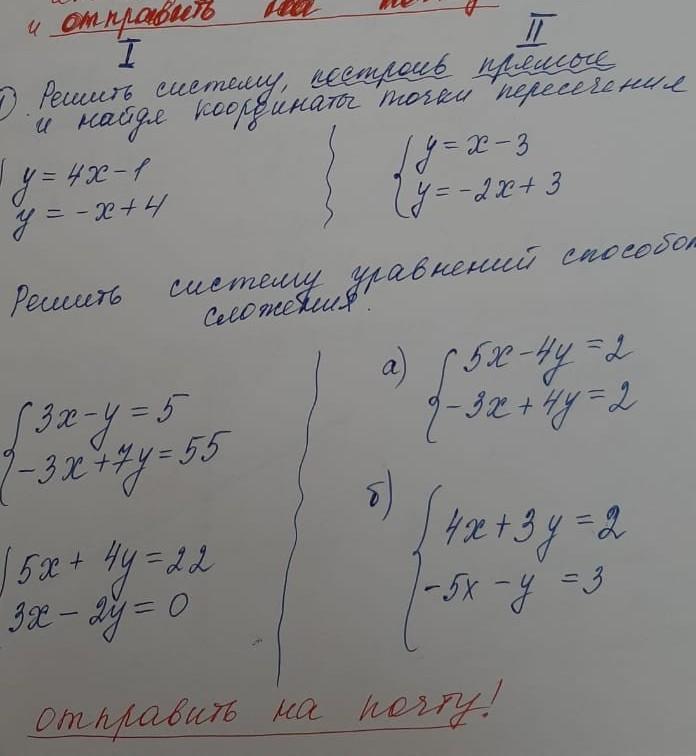 и отправить на почту
I II
1) Решить систему, построив прямые
и найдя координаты точки пересечения
y = 4x - 1
y = -x + 4
y = x - 3
y = -2x + 3
Решить систему уравнений способом
сложения.
3x - y = 5
-3x + 7y = 55
5x + 4y = 22
3x - 2y = 0
а) 5x - 4y = 2
-3x + 4y = 2
б) 4x + 3y = 2
-5x - y = 3
отправить на почту!